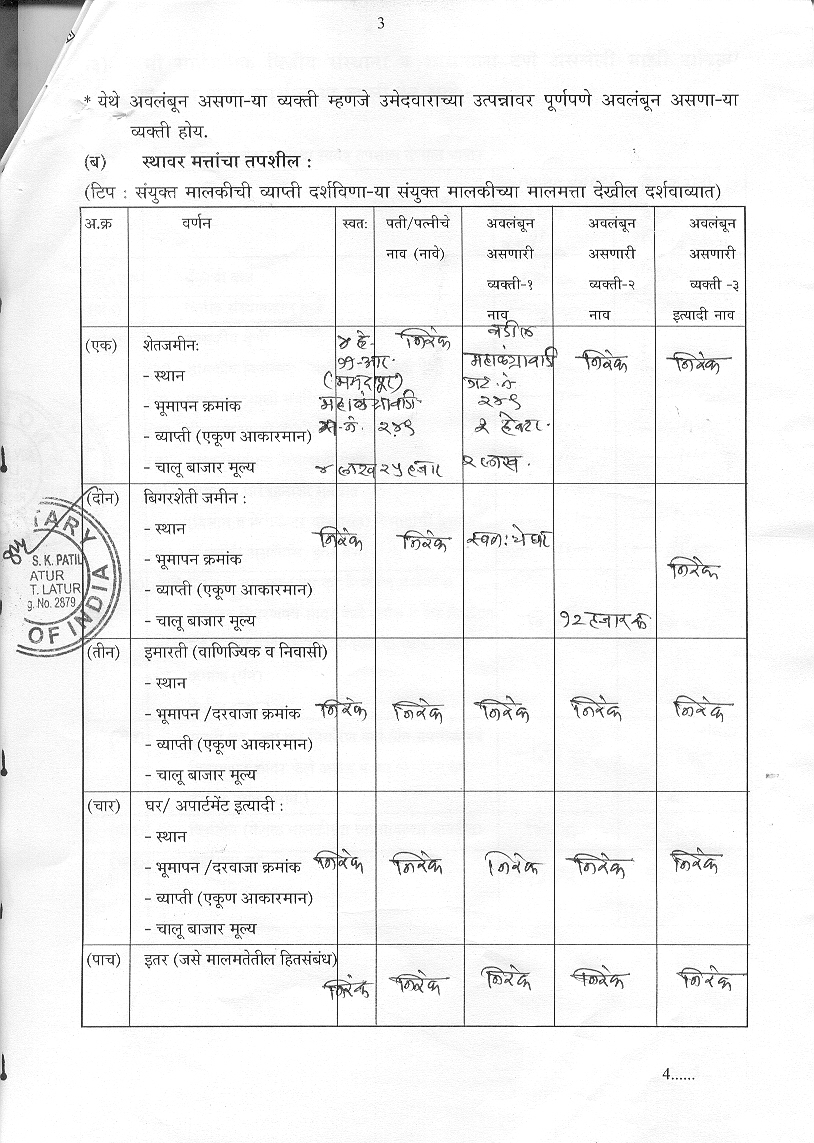 3
* येथे अवलंबून असणा-या व्यक्ती म्हणजे उमेदवाराच्या उत्पन्नावर पूर्णपणे अवलंबून असणा-या
व्यक्ती होय.
(ब) स्थावर मत्तांचा तपशील :
(टिप : संयुक्त मालकीची व्याप्ती दर्शविणा-या संयुक्त मालकीच्या मालमत्ता देखील दर्शवाव्यात)
अ.क्र वर्णन स्वतः पती/पत्नीचे अवलंबून अवलंबून अवलंबून
नाव (नावे) असणारी असणारी असणारी
व्यक्ती-१ व्यक्ती-२ व्यक्ती -३
नाव नाव इत्यादी नाव
(एक) शेतजमीन: ४ हे. निरंक वडील
- स्थान ११-आर. महाळंग्रावाडी निरंक निरंक
(ममदापूर) गट नं
- भूमापन क्रमांक महाळंग्रावाडी २४९
- व्याप्ती (एकूण आकारमान) २४९ २ हेक्टर.
- चालू बाजार मूल्य ४ लाख २५ हजार २ लाख.
(दोन) बिगरशेती जमीन :
- स्थान निरंक निरंक
- भूमापन क्रमांक निरंक
- व्याप्ती (एकूण आकारमान)
- चालू बाजार मूल्य १२ हजार रु
(तीन) इमारती (वाणिज्यिक व निवासी)
- स्थान
- भूमापन /दरवाजा क्रमांक निरंक निरंक निरंक निरंक निरंक
- व्याप्ती (एकूण आकारमान)
- चालू बाजार मूल्य
(चार) घर/ अपार्टमेंट इत्यादी :
- स्थान
- भूमापन /दरवाजा क्रमांक निरंक निरंक निरंक निरंक निरंक
- व्याप्ती (एकूण आकारमान)
- चालू बाजार मूल्य
(पाच) इतर (जसे मालमतेतील हितसंबंध)
निरंक निरंक निरंक निरंक निरंक
S. K. PATIL
ATUR
T. LATUR
g. No. 2879
OF INDIA
4......